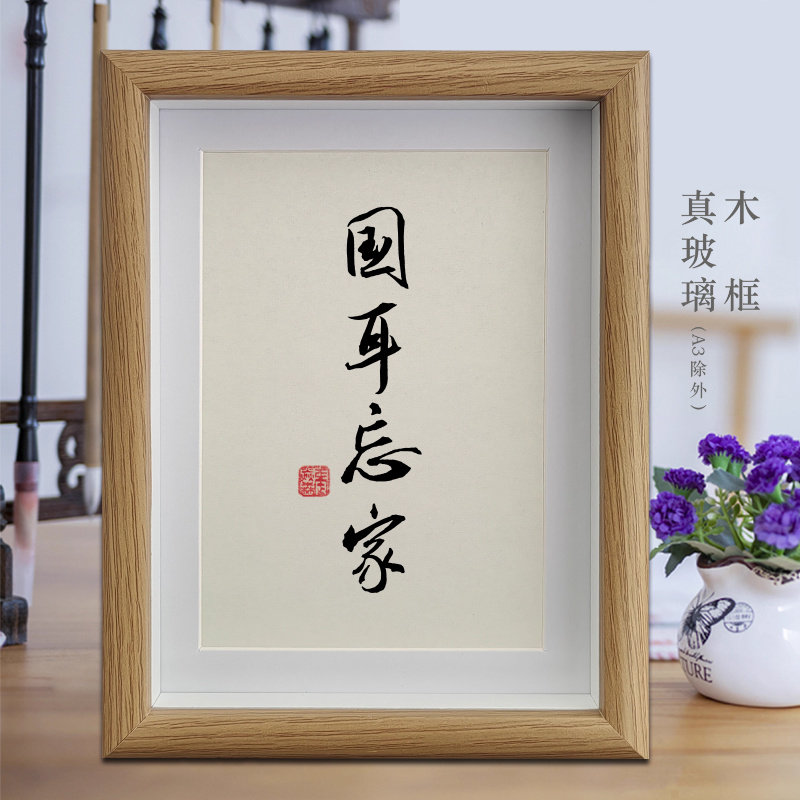 国耳忘家
木框
真玻璃(A3除外)
TURE